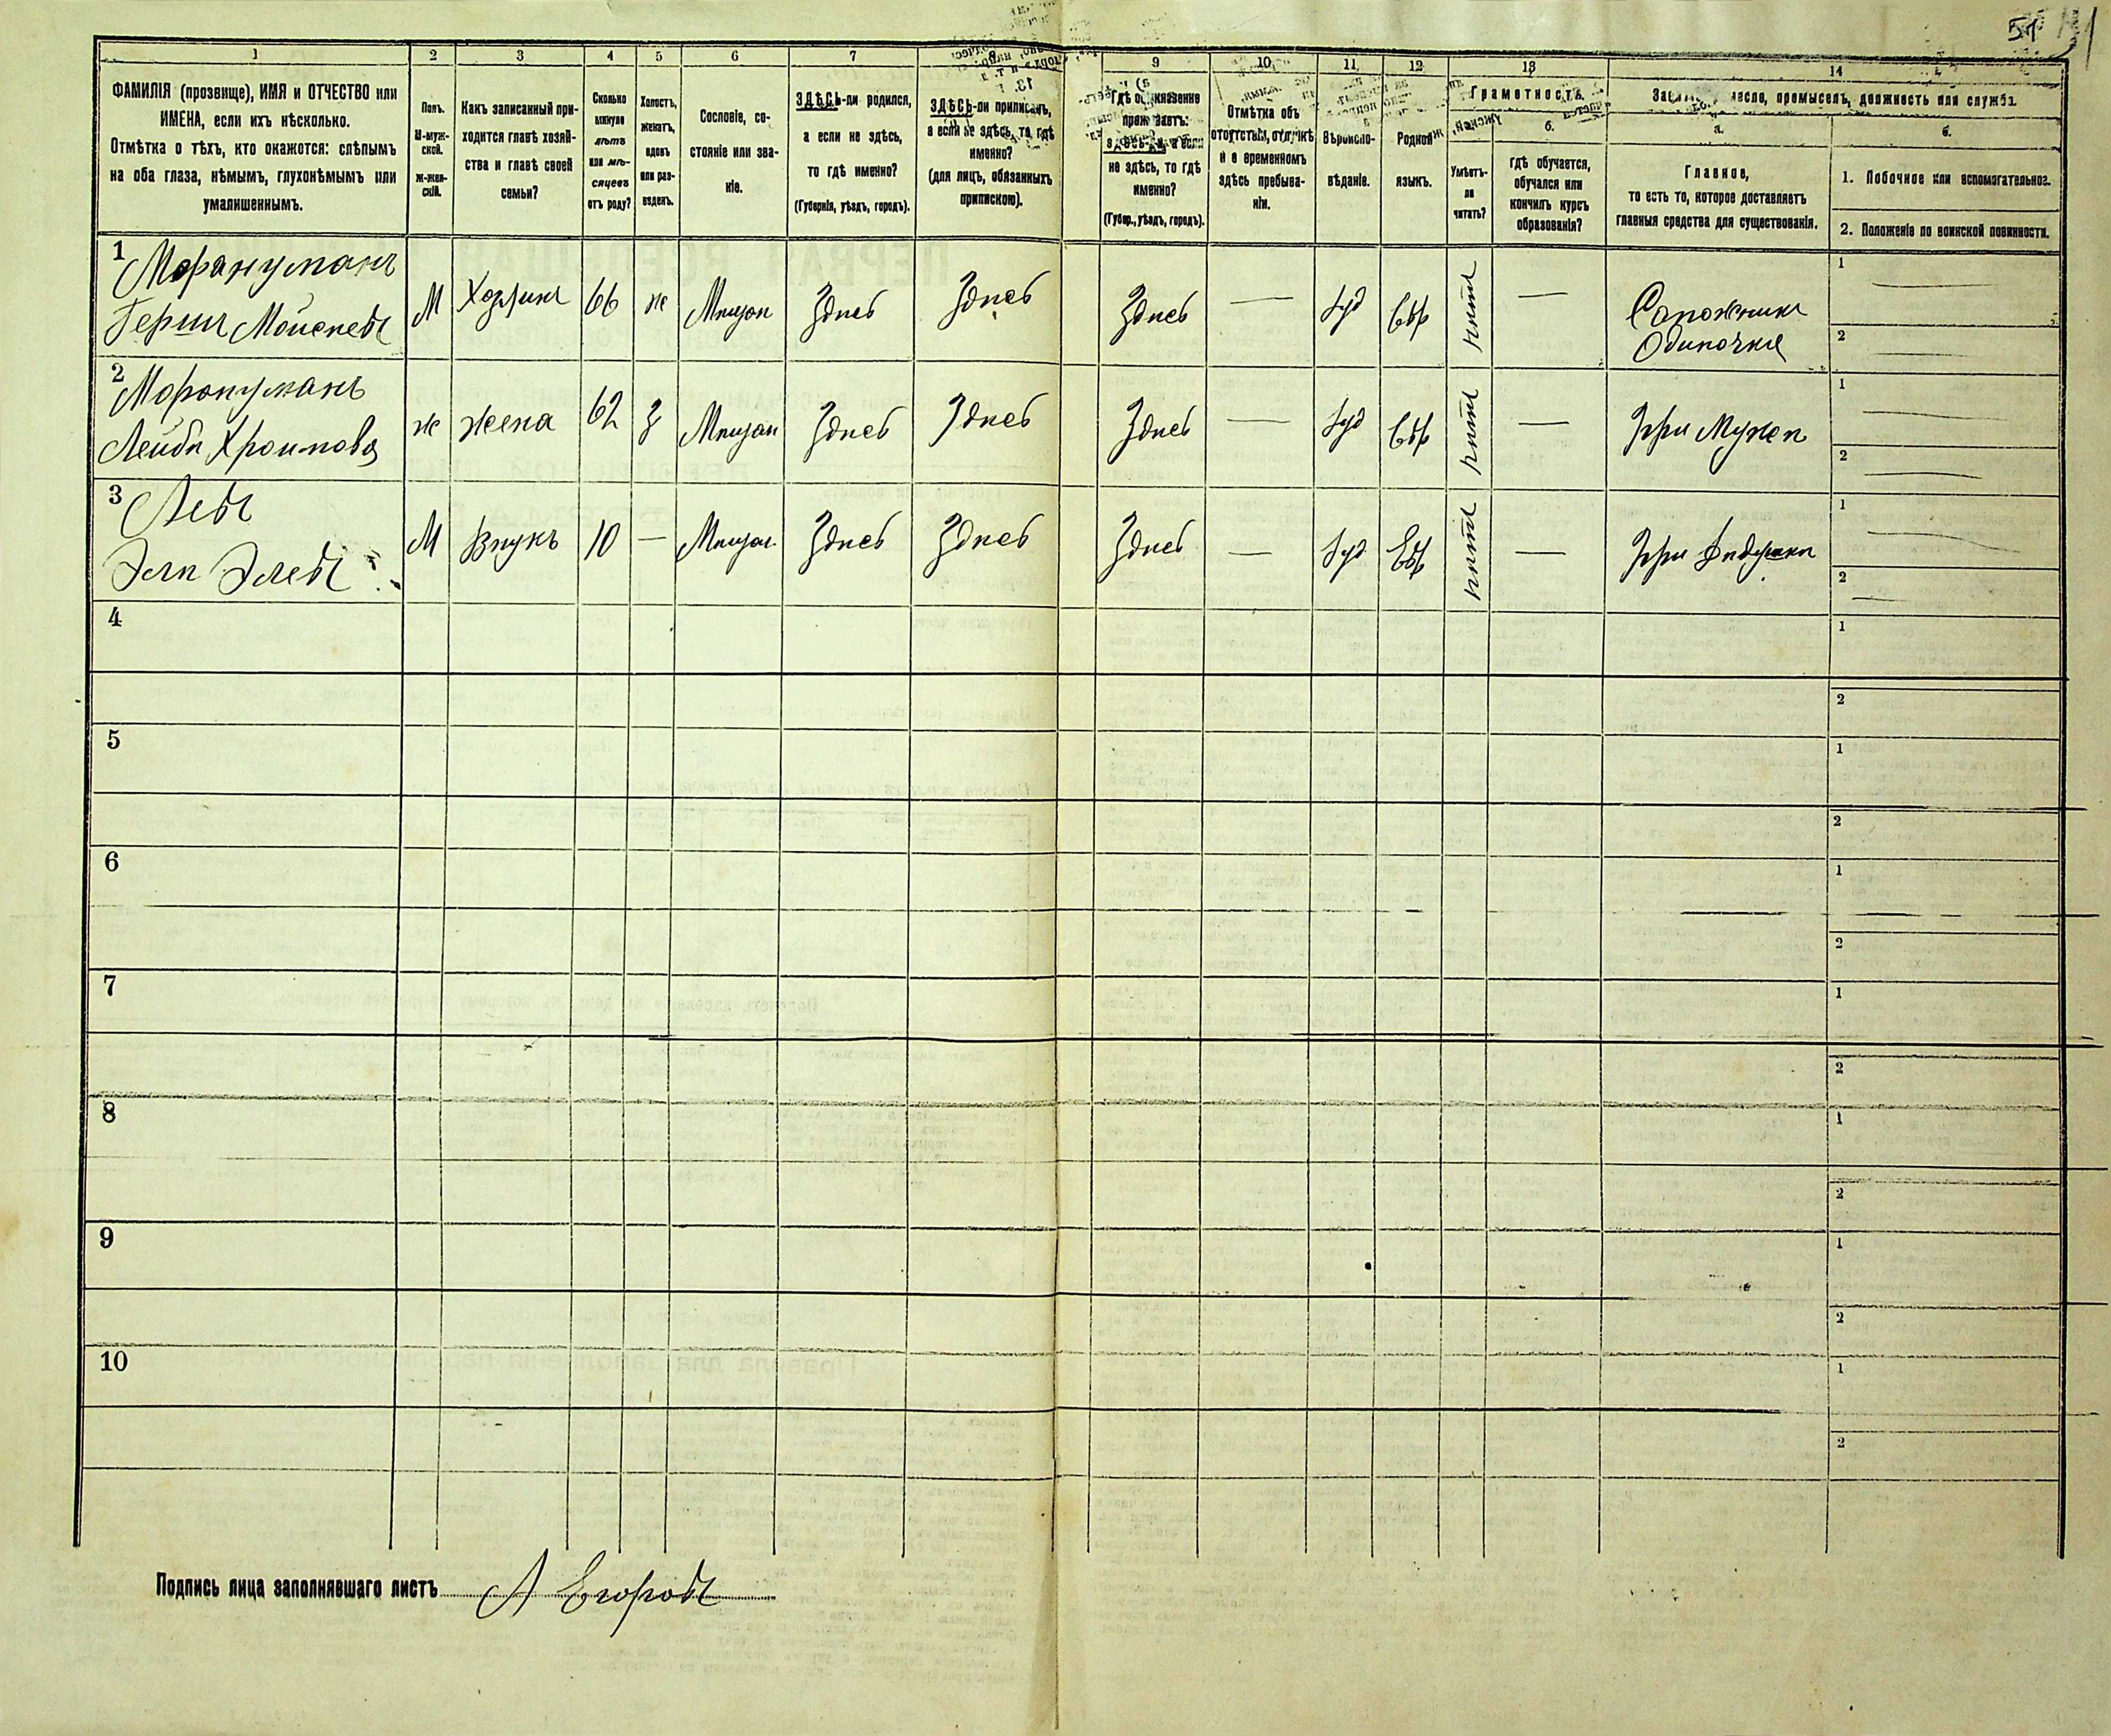 51
1
2
3
4
5
6
7
8
9
10
11
12
13
14
ФАМИЛІЯ (прозвище), ИМЯ и ОТЧЕСТВО или
ИМЕНА, если ихъ нѣсколько.
Отмѣтка о тѣхъ, кто окажется: слѣпымъ
на оба глаза, нѣмымъ, глухонѣмымъ или
умалишеннымъ.
Полъ.
М-муж-
ской.
Ж-жен-
скій.
Какъ записанный при-
ходится главѣ хозяй-
ства и главѣ своей
семьи?
Сколько
минуло
лѣтъ
или мѣ-
сяцевъ
отъ роду?
Холостъ,
женатъ,
вдовъ
или раз-
веденъ.
Сословіе, со-
стояніе или зва-
ніе.
ЗДѢСЬ-ли родился,
а если не здѣсь,
то гдѣ именно?
(Губернія, уѣздъ, городъ).
ЗДѢСЬ-ли приписанъ,
а если не здѣсь, то гдѣ
именно?
(для лицъ, обязанныхъ
припискою).
Гдѣ обыкновенно
проживаетъ:
здѣсь-ли, а если
не здѣсь, то гдѣ
именно?
(Губер., уѣздъ, городъ).
Отмѣтка объ
отсутствіи, отлучкѣ
и о временномъ
здѣсь пребыва-
ніи.
Вѣроиспо-
вѣданіе.
Родной
языкъ.
Грамотность.
Умѣетъ-
ли
читать?
б.
гдѣ обучается,
обучался или
кончилъ курсъ
образованія?
Занятіе, ремесло, промыселъ, должность или служба.
а.
Главное,
то есть то, которое доставляетъ
главныя средства для существованія.
б.
1. Побочное или вспомогательное.
2. Положеніе по воинской повинности.
1
Герш Мойсеевъ
М Хозяинъ 66 ж Мѣщан Здѣсь Здѣсь Здѣсь — Іуд Евр нѣтъ —
Сапожникъ
Одиночка
1 —
2 —
2
ж жена 62 з Мѣщан Здѣсь Здѣсь Здѣсь — Іуд Евр нѣтъ — При Мужѣ
1 —
2 —
3
М Внукъ 10 — Мѣщан Здѣсь Здѣсь Здѣсь — Іуд Евр нѣтъ — При Дѣдушкѣ
1 —
2 —
4
1
2
5
1
2
6
1
2
7
1
2
8
1
2
9
1
2
10
1
2
Подпись лица заполнявшаго листъ А Егоровъ